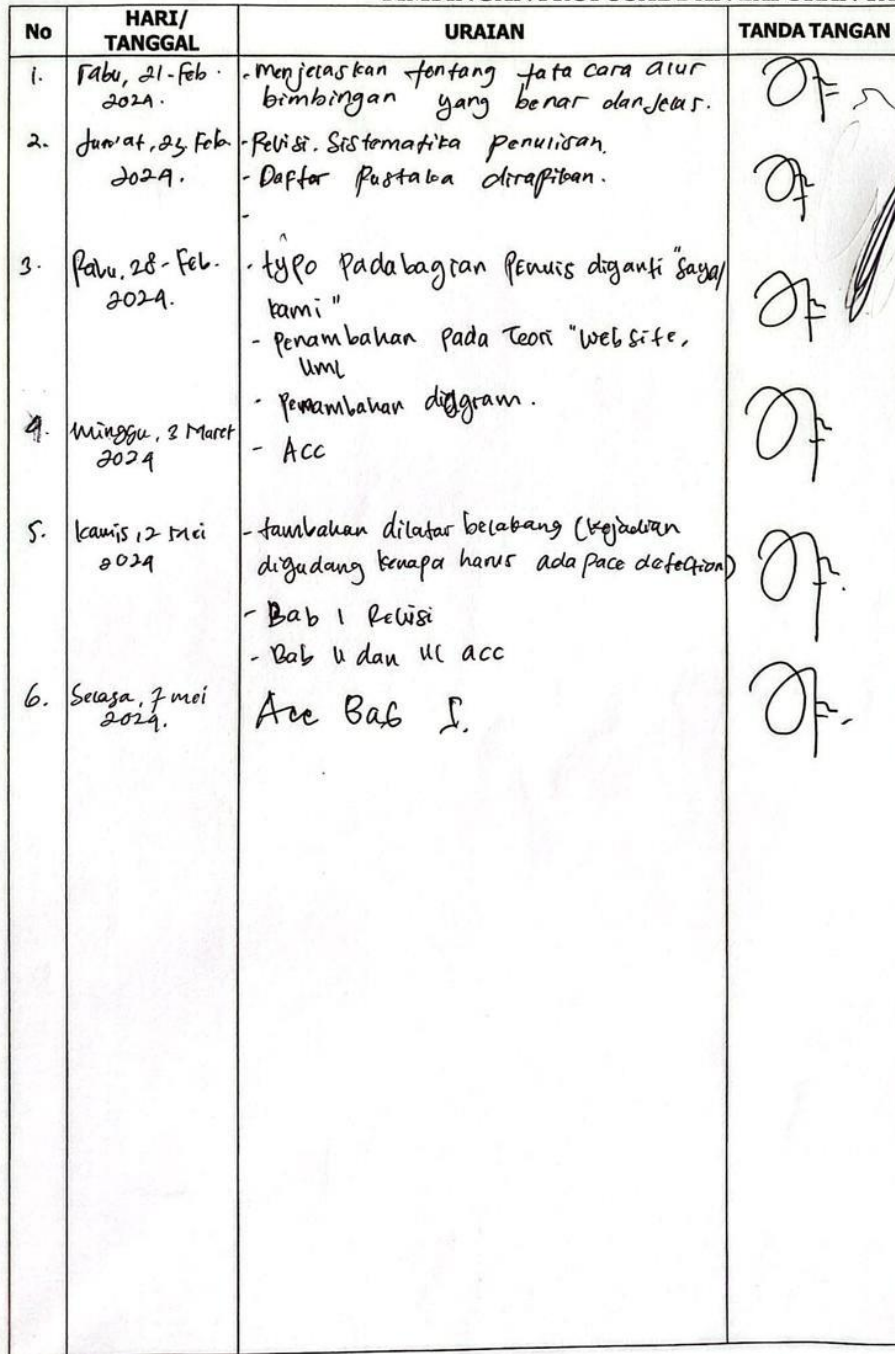 No
HARI/
TANGGAL
URAIAN
TANDA TANGAN
1.
Rabu, 21-Feb.
2024.
- Menjelaskan tentang tata cara alur
bimbingan yang benar dan jelas.
2.
Jum'at, 23 Feb.
2024.
- Revisi. Sistematika penulisan.
- Daftar Pustaka dirapikan.
-
3.
Rabu, 28-Feb.
2024.
- typo Pada bagian Penulis diganti "saya/
kami"
- Penambahan Pada Teori "Website,
UML
- Penambahan diagram.
4.
Minggu, 3 Maret
2024
- Acc
5.
Kamis, 2 Mei
2024
- tambahan dilatar belakang (kejadian
digudang kenapa harus ada face detection)
- Bab 1 Revisi
- Bab II dan III acc
6.
Selasa, 7 mei
2024.
Acc Bab I.